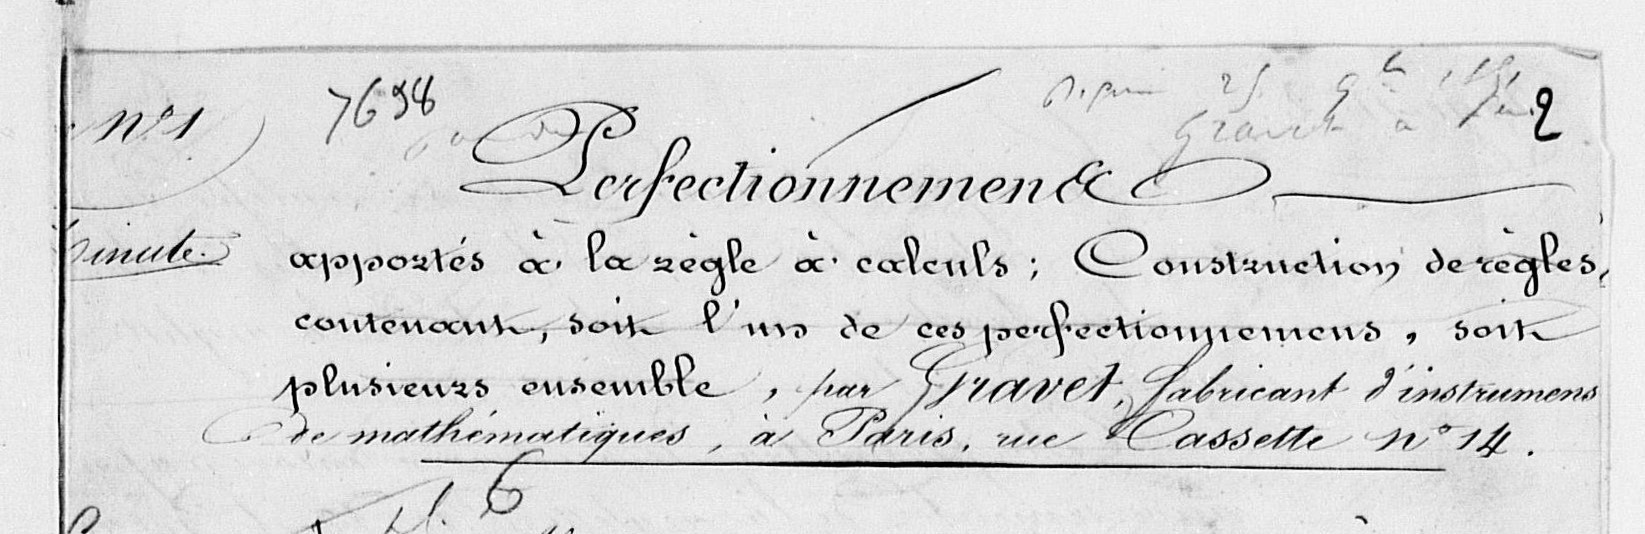 7698
2
N° 1
Perfectionnemens
minute.
apportés à la règle à calculs ; Construction de règles,
contenant, soit l'un de ces perfectionnemens, soit
plusieurs ensemble, par Gravet, fabricant d'instrumens
de mathématiques, à Paris, rue Cassette n° 14.